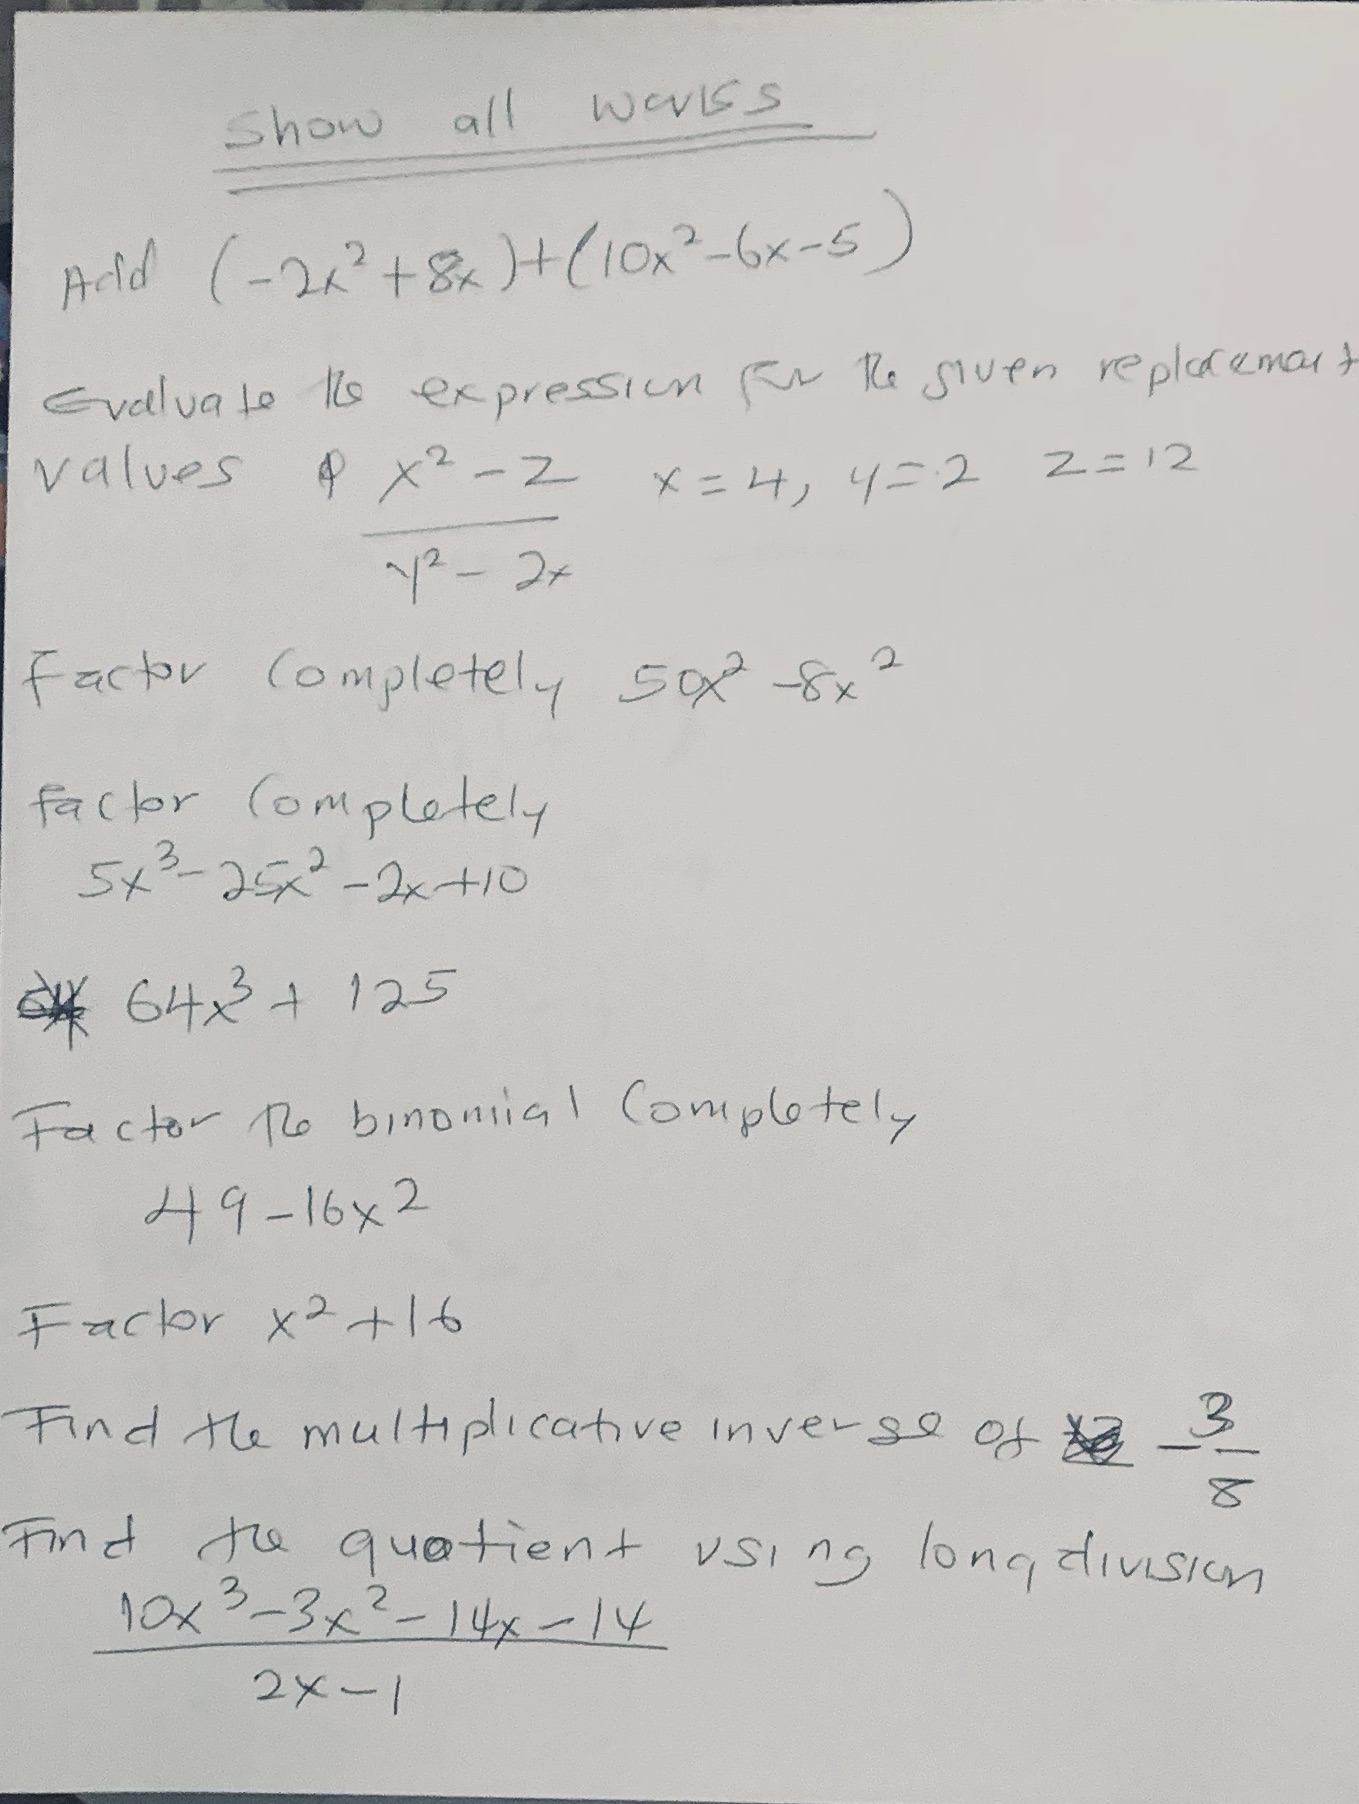 Show all works
Add (-2x²+8x)+(10x²-6x-5)
Evaluate the expression for the given replacement
values x²-z x=4, y=2 z=12
y²-2x
Factor Completely 50x²-8x²
factor Completely
5x³-25x²-2x+10
64x³+125
Factor the binomial Completely
49-16x²
Factor x²+16
Find the multiplicative inverse of -3
8
Find the quotient using long division
10x³-3x²-14x-14
2x-1